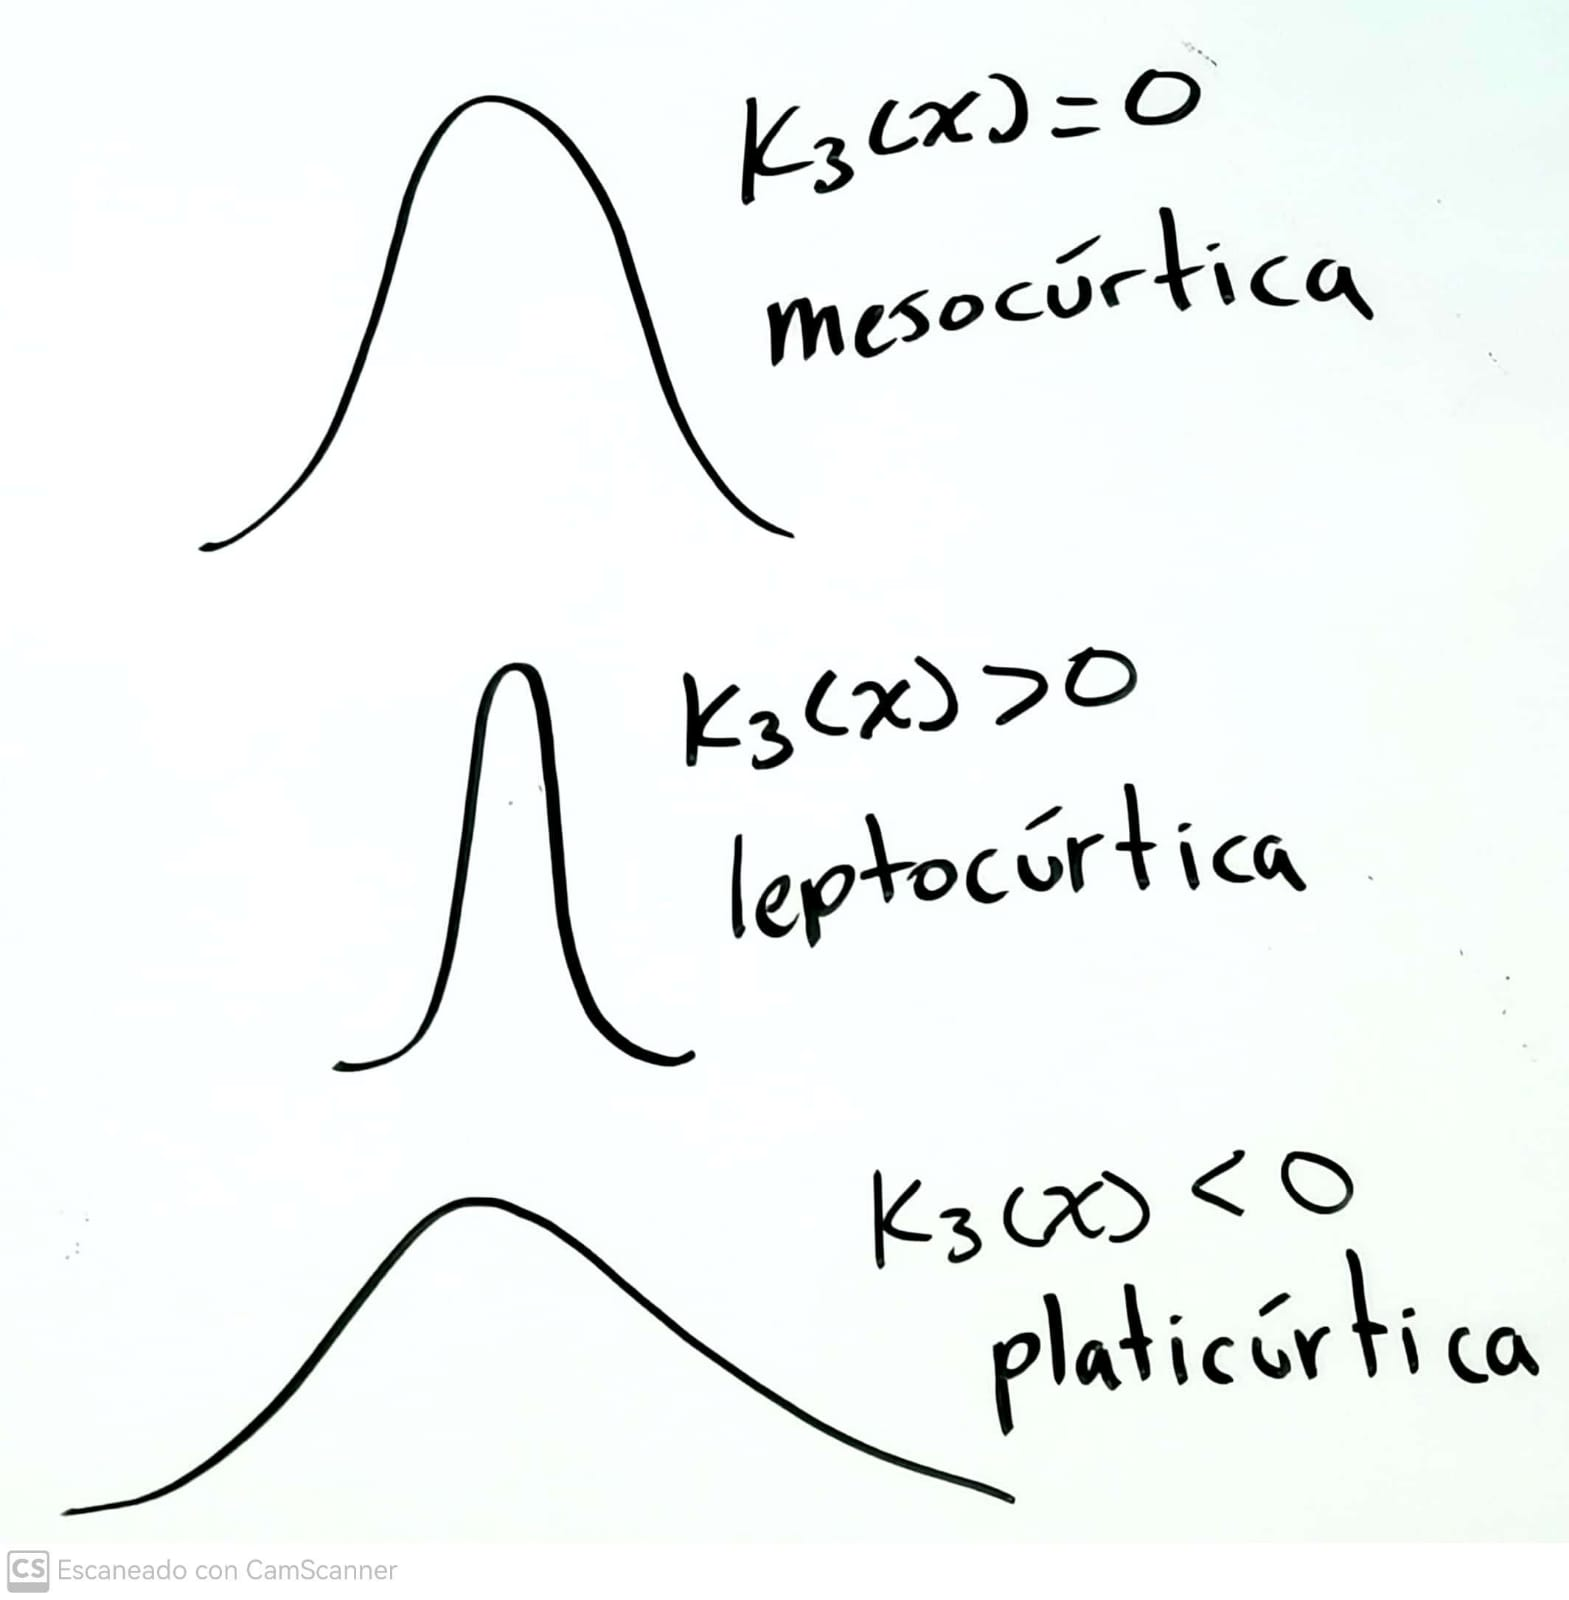 K₃(x)=0
mesocúrtica
K₃(x)>0
leptocúrtica
K₃(x)<0
platicúrtica
CS Escaneado con CamScanner